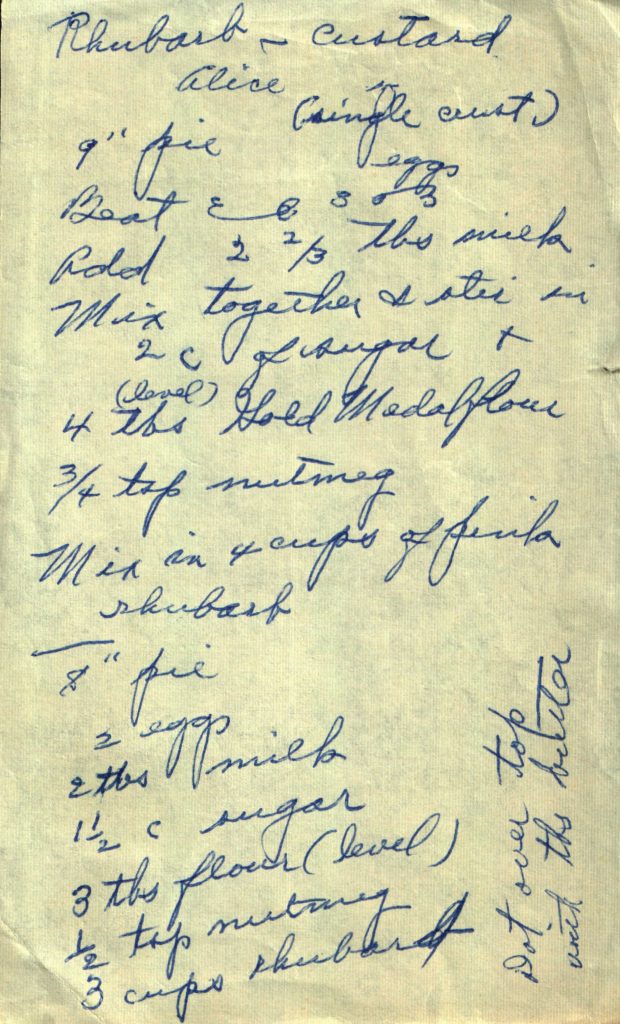 Rhubarb - custard
Alice
(single crust)
9" pie
eggs
Beat 3
Add 2 2/3 tbs milk
Mix together & stir in
2 c of sugar +
(level)
4 tbs Gold Medal flour
3/4 tsp nutmeg
Mix in 4 cups of pink
rhubarb
8" pie
2 eggs
2 tbs milk
1 1/2 c sugar
3 tbs flour (level)
1/2 tsp nutmeg
3 cups rhubarb
Dot over top
with tbs butter